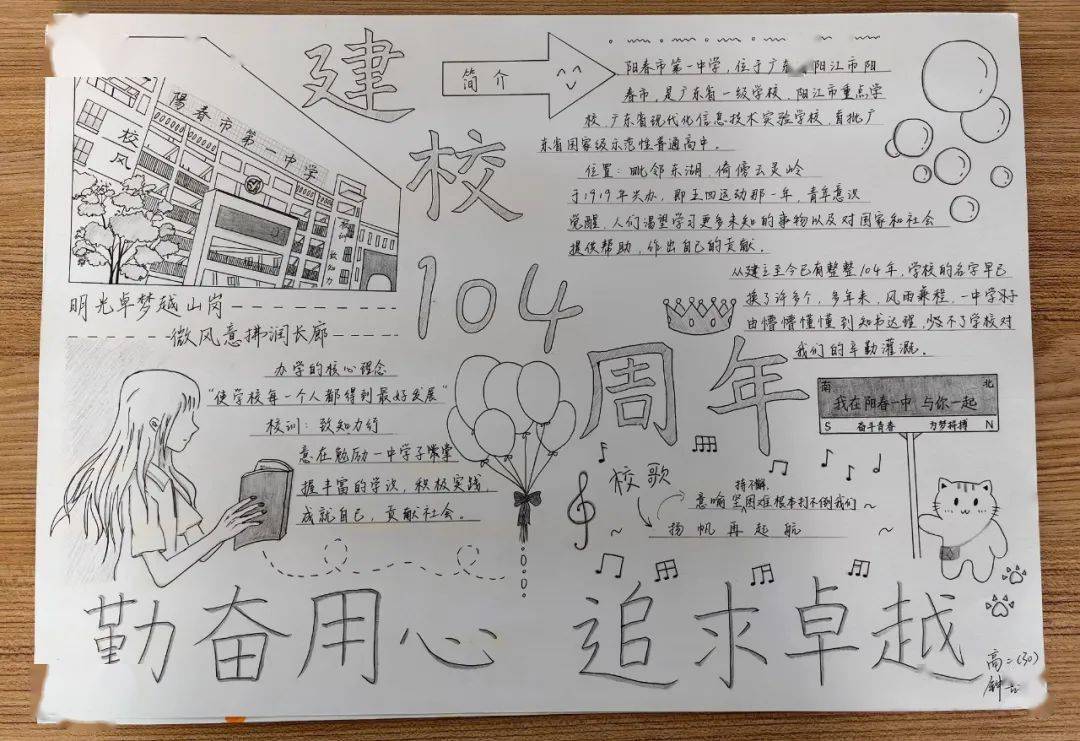 建校104周年
简介
阳春市第一中学，位于广东 阳江市阳
春市，是广东省一级学校，阳江市重点学
校，广东省现代化信息技术实验学校，首批广
东省国家级示范性普通高中。
位置：毗邻东湖，倚傍云灵岭
于1919年兴办，即五四运动那一年，青年意识
觉醒，人们渴望学习更多未知的事物以及对国家和社会
提供帮助，作出自己的贡献。
从建立至今已有整整104年，学校的名字早已
换了许多个，多年来，风雨兼程，一中学子
由懵懵懂懂到知书达理，少不了学校对
我们的辛勤灌溉。
陽春市第一中学
校风
致知力
明光卓梦越山岗
微风意拂润长廊
办学的核心理念
“使学校每一个人都得到最好发展”
校训：致知力行
意在勉励一中学子
握丰富的学识，积极实践，
成就自己，贡献社会。
南 北
我在阳春一中 与你一起
S 奋斗青春 为梦拼搏 N
校歌
持不懈，
意喻坚困难根本打不倒我们
扬帆再起航
勤奋用心 追求卓越
高二(30)